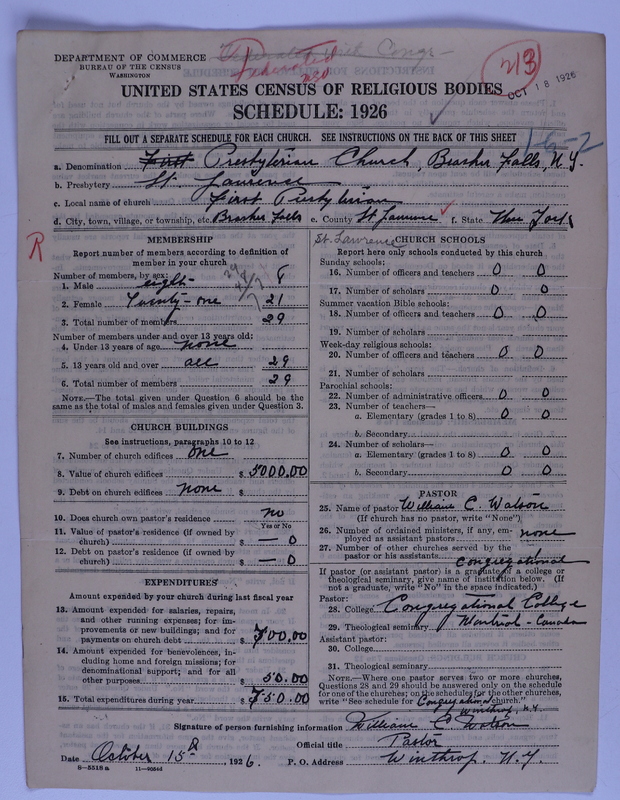 DEPARTMENT OF COMMERCE
BUREAU OF THE CENSUS
WASHINGTON
Federated with Cong-
Federated
213
OCT 18 1926
UNITED STATES CENSUS OF RELIGIOUS BODIES
SCHEDULE: 1926
FILL OUT A SEPARATE SCHEDULE FOR EACH CHURCH. SEE INSTRUCTIONS ON THE BACK OF THIS SHEET
16-2
a. Denomination First Presbyterian Church, Brasher Falls, N.Y.
b. Presbytery St. Lawrence
c. Local name of church First Presbyterian
d. City, town, village, or township, etc. Brasher Falls e. County St Lawrence f. State New York
R
St. Lawrence
MEMBERSHIP
Report number of members according to definition of member in your church
Number of members, by sex:
1. Male eight 8
2. Female Twenty-one 21
3. Total number of members 29
Number of members under and over 13 years old:
4. Under 13 years of age none
5. 13 years old and over all 29
6. Total number of members 29
NOTE.—The total given under Question 6 should be
same as the total of males and females given under Question 3.
CHURCH BUILDINGS
See instructions, paragraphs 10 to 12
7. Number of church edifices one
8. Value of church edifices $ 5000.00
9. Debt on church edifices none $
10. Does church own pastor's residence no
Yes or No
11. Value of pastor's residence (if owned by
church) $ — 0
12. Debt on pastor's residence (if owned by
church) $ — 0
EXPENDITURES
Amount expended by your church during last fiscal year
13. Amount expended for salaries, repairs,
and other running expenses; for im-
provements or new buildings; and for
payments on church debt $ 700.00
14. Amount expended for benevolences, in-
cluding home and foreign missions; for
denominational support; and for all
other purposes $ 50.00
15. Total expenditures during year $ 750.00
CHURCH SCHOOLS
Report here only schools conducted by this church
Sunday schools:
16. Number of officers and teachers 0 0
17. Number of scholars 0 0
Summer vacation Bible schools:
18. Number of officers and teachers 0 0
19. Number of scholars
Week-day religious schools:
20. Number of officers and teachers 0 0
21. Number of scholars
Parochial schools:
22. Number of administrative officers 0 0
23. Number of teachers—
a. Elementary (grades 1 to 8) 0 0
b. Secondary
24. Number of scholars—
a. Elementary (grades 1 to 8) 0 0
b. Secondary 0 0
PASTOR
25. Name of pastor William C. Watson
(If church has no pastor, write "None")
26. Number of ordained ministers, if any, em-
ployed as assistant pastors none
27. Number of other churches served by the
pastor or his assistants 1
Congregational
If pastor (or assistant pastor) is a graduate of a college or
theological seminary, give name of institution below. (If
not a graduate, write "No" in the space indicated.)
Pastor:
28. College Congregational College
29. Theological seminary Montreal - Canada
Assistant pastor:
30. College
31. Theological seminary
NOTE.—Where one pastor serves two or more churches,
Questions 28 and 29 should be answered only on the schedule
for one of the churches; on the schedules for the other churches,
write "See schedule for Congregational church."
Winthrop, N.Y.
Signature of person furnishing information William C. Watson
Official title Pastor
Date October 15th, 1926. P. O. Address Winthrop, N.Y.
8—5518 a